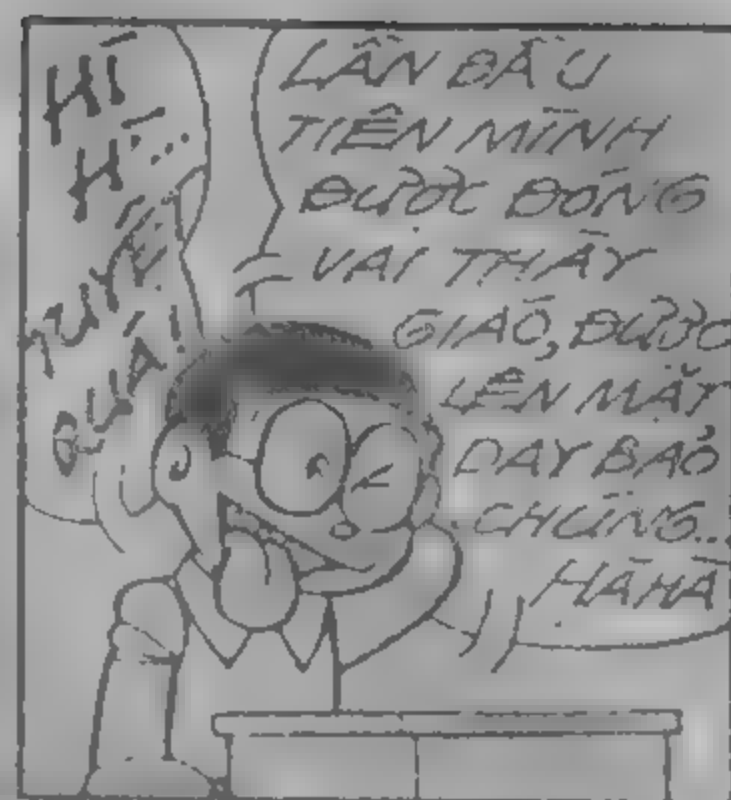 HÍ
HÍ...
TUYỆT
QUÁ!
LẦN ĐẦU
TIÊN MÌNH
ĐƯỢC ĐÓNG
VAI THẦY
GIÁO, ĐƯỢC
LÊN MẶT
DẠY BẢO
CHÚNG...
HÀHÀ